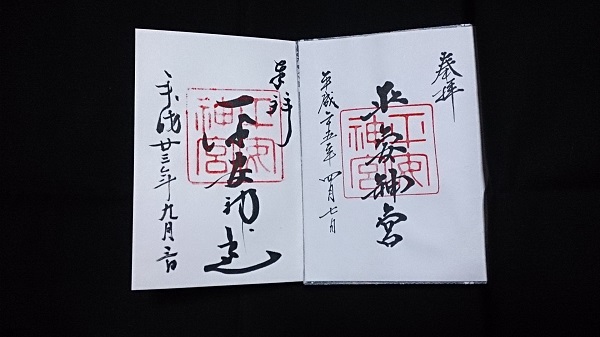 奉拝
平安神宮
平安
神宮
平成廿五年 四月七日
奉拝
平安神宮
平安
神宮
平成廿三年九月